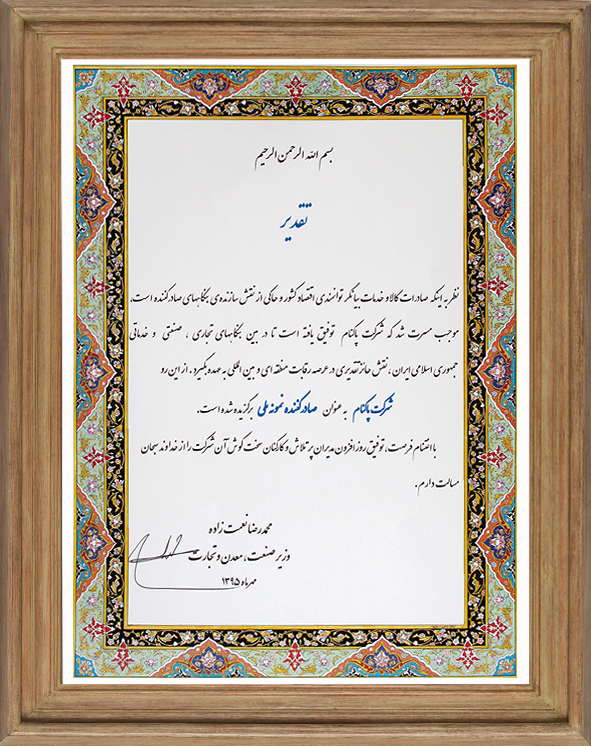 بسم الله الرحمن الرحیم
تقدیر
نظر به اینکه صادرات کالا و خدمات بیانگر توانمندی اقتصاد کشور و حاکی از نقش سازنده‌ی بنگاههای صادرکننده است،
موجب مسرت شد که شرکت پاکنام توفیق یافته است تا در بین بنگاههای تجاری ، صنعتی و خدماتی
جمهوری اسلامی ایران، نقش حائز تقدیری در عرصه رقابت منطقه ای و بین المللی به عهده بگیرد. از این رو
شرکت پاکنام به عنوان صادرکننده نمونه ملی برگزیده شده است.
با اغتنام فرصت، توفیق روز افزون مدیران پر تلاش و کارکنان سخت کوش آن شرکت را از خداوند سبحان
مسالت دارم.
محمدرضا نعمت زاده
وزیر صنعت، معدن و تجارت
مهرماه ۱۳۹۵